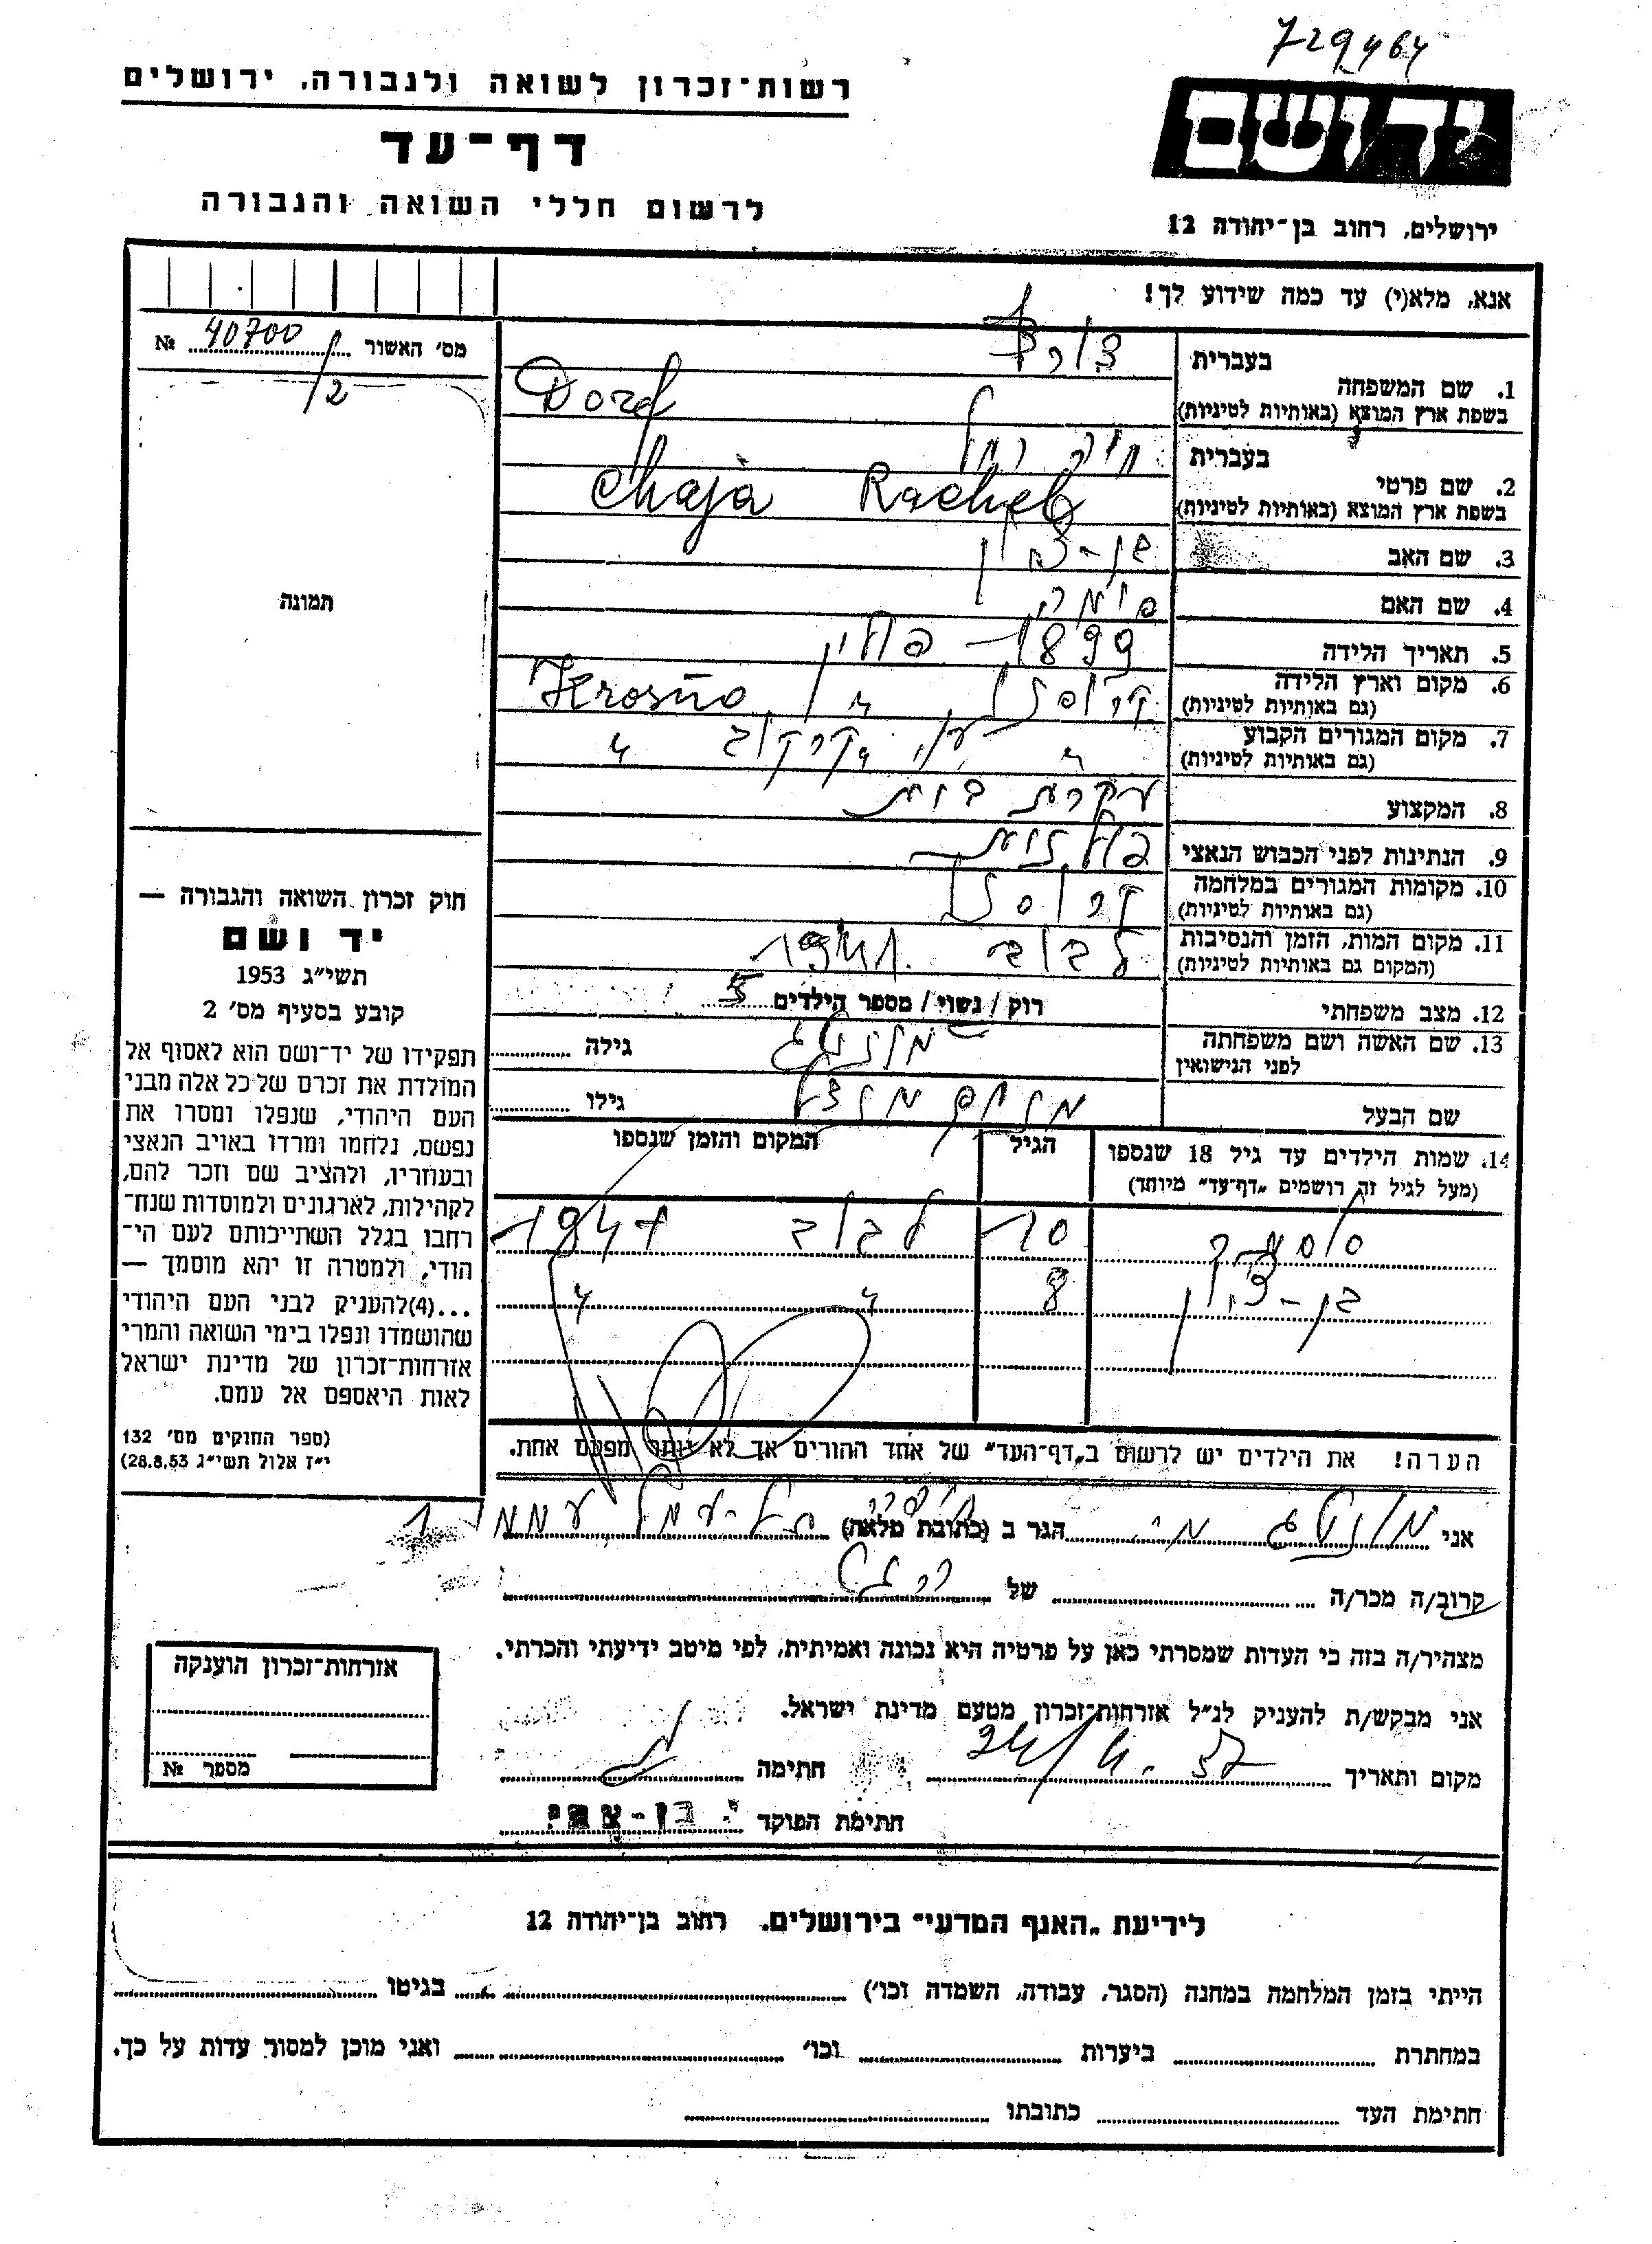 729464
רשות־זכרון לשואה ולגבורה, ירושלים
דף־עד
לרשום חללי השואה והגבורה
ידושם
ירושלים, רחוב בן־יהודה 12
אנא, מלא(י) עד כמה שידוע לך!
מס׳ האשור № 40700/2
תמונה
1. שם המשפחה בעברית
בשפת ארץ המוצא (באותיות לטיניות) Dorf
2. שם פרטי בעברית חיה רחל
בשפת ארץ המוצא (באותיות לטיניות) Chaja Rachel
3. שם האב בן-ציון
4. שם האם
5. תאריך הלידה 1899 פולין
6. מקום וארץ הלידה קרוסנו " Krosno
(גם באותיות לטיניות)
7. מקום המגורים הקבוע " ע"י קרקוב "
(גם באותיות לטיניות)
8. המקצוע עקרת בית
9. הנתינות לפני הכבוש הנאצי פולנית
10. מקומות המגורים במלחמה קרוסנו
(גם באותיות לטיניות)
11. מקום המות, הזמן והנסיבות לבוב 1941
(המקום גם באותיות לטיניות)
12. מצב משפחתי רוק / נשוי / מספר הילדים 5
13. שם האשה ושם משפחתה
לפני הנישואין גילה
שם הבעל מנחם מנדל גילו
14. שמות הילדים עד גיל 18 שנספו הגיל המקום והזמן שנספו
(מעל לגיל זה רושמים „דף־עד״ מיוחד)
10 לבוב 1941
בן-ציון 8 " "
הערה! את הילדים יש לרשום ב„דף־העד״ של אחד ההורים אך לא יותר מפעם אחת.
חוק זכרון השואה והגבורה —
יד ושם
תשי״ג 1953
קובע בסעיף מס׳ 2
תפקידו של יד־ושם הוא לאסוף אל
המולדת את זכרם של כל אלה מבני
העם היהודי, שנפלו ומסרו את
נפשם, נלחמו ומרדו באויב הנאצי
ובעוזריו, ולהציב שם וזכר להם,
לקהילות, לארגונים ולמוסדות שנח־
רחבו בגלל השתייכותם לעם הי־
הודי, ולמטרה זו יהא מוסמך —
...(4) להעניק לבני העם היהודי
שהושמדו ונפלו בימי השואה והמרי
אזרחות־זכרון של מדינת ישראל
לאות היאספם אל עמם.
(ספר החוקים מס׳ 132
י״ז אלול תשי״ג 28.8.53)
אני הגר ב (כתובת מלאה)
קרוב/ה מכר/ה של
מצהיר/ה בזה כי העדות שמסרתי כאן על פרטיה היא נכונה ואמיתית, לפי מיטב ידיעתי והכרתי.
אני מבקש/ת להעניק לנ״ל אזרחות־זכרון מטעם מדינת ישראל.
מקום ותאריך 24/4.57 חתימה
חתימת הפוקד י. בן-צבי
אזרחות־זכרון הוענקה
מספר №
לידיעת „האגף המדעי״ בירושלים. רחוב בן־יהודה 12
הייתי בזמן המלחמה במחנה (הסגר, עבודה, השמדה וכו׳) בגיטו
במחתרת ביערות וכו׳ ואני מוכן למסור עדות על כך.
חתימת העד כתובתו